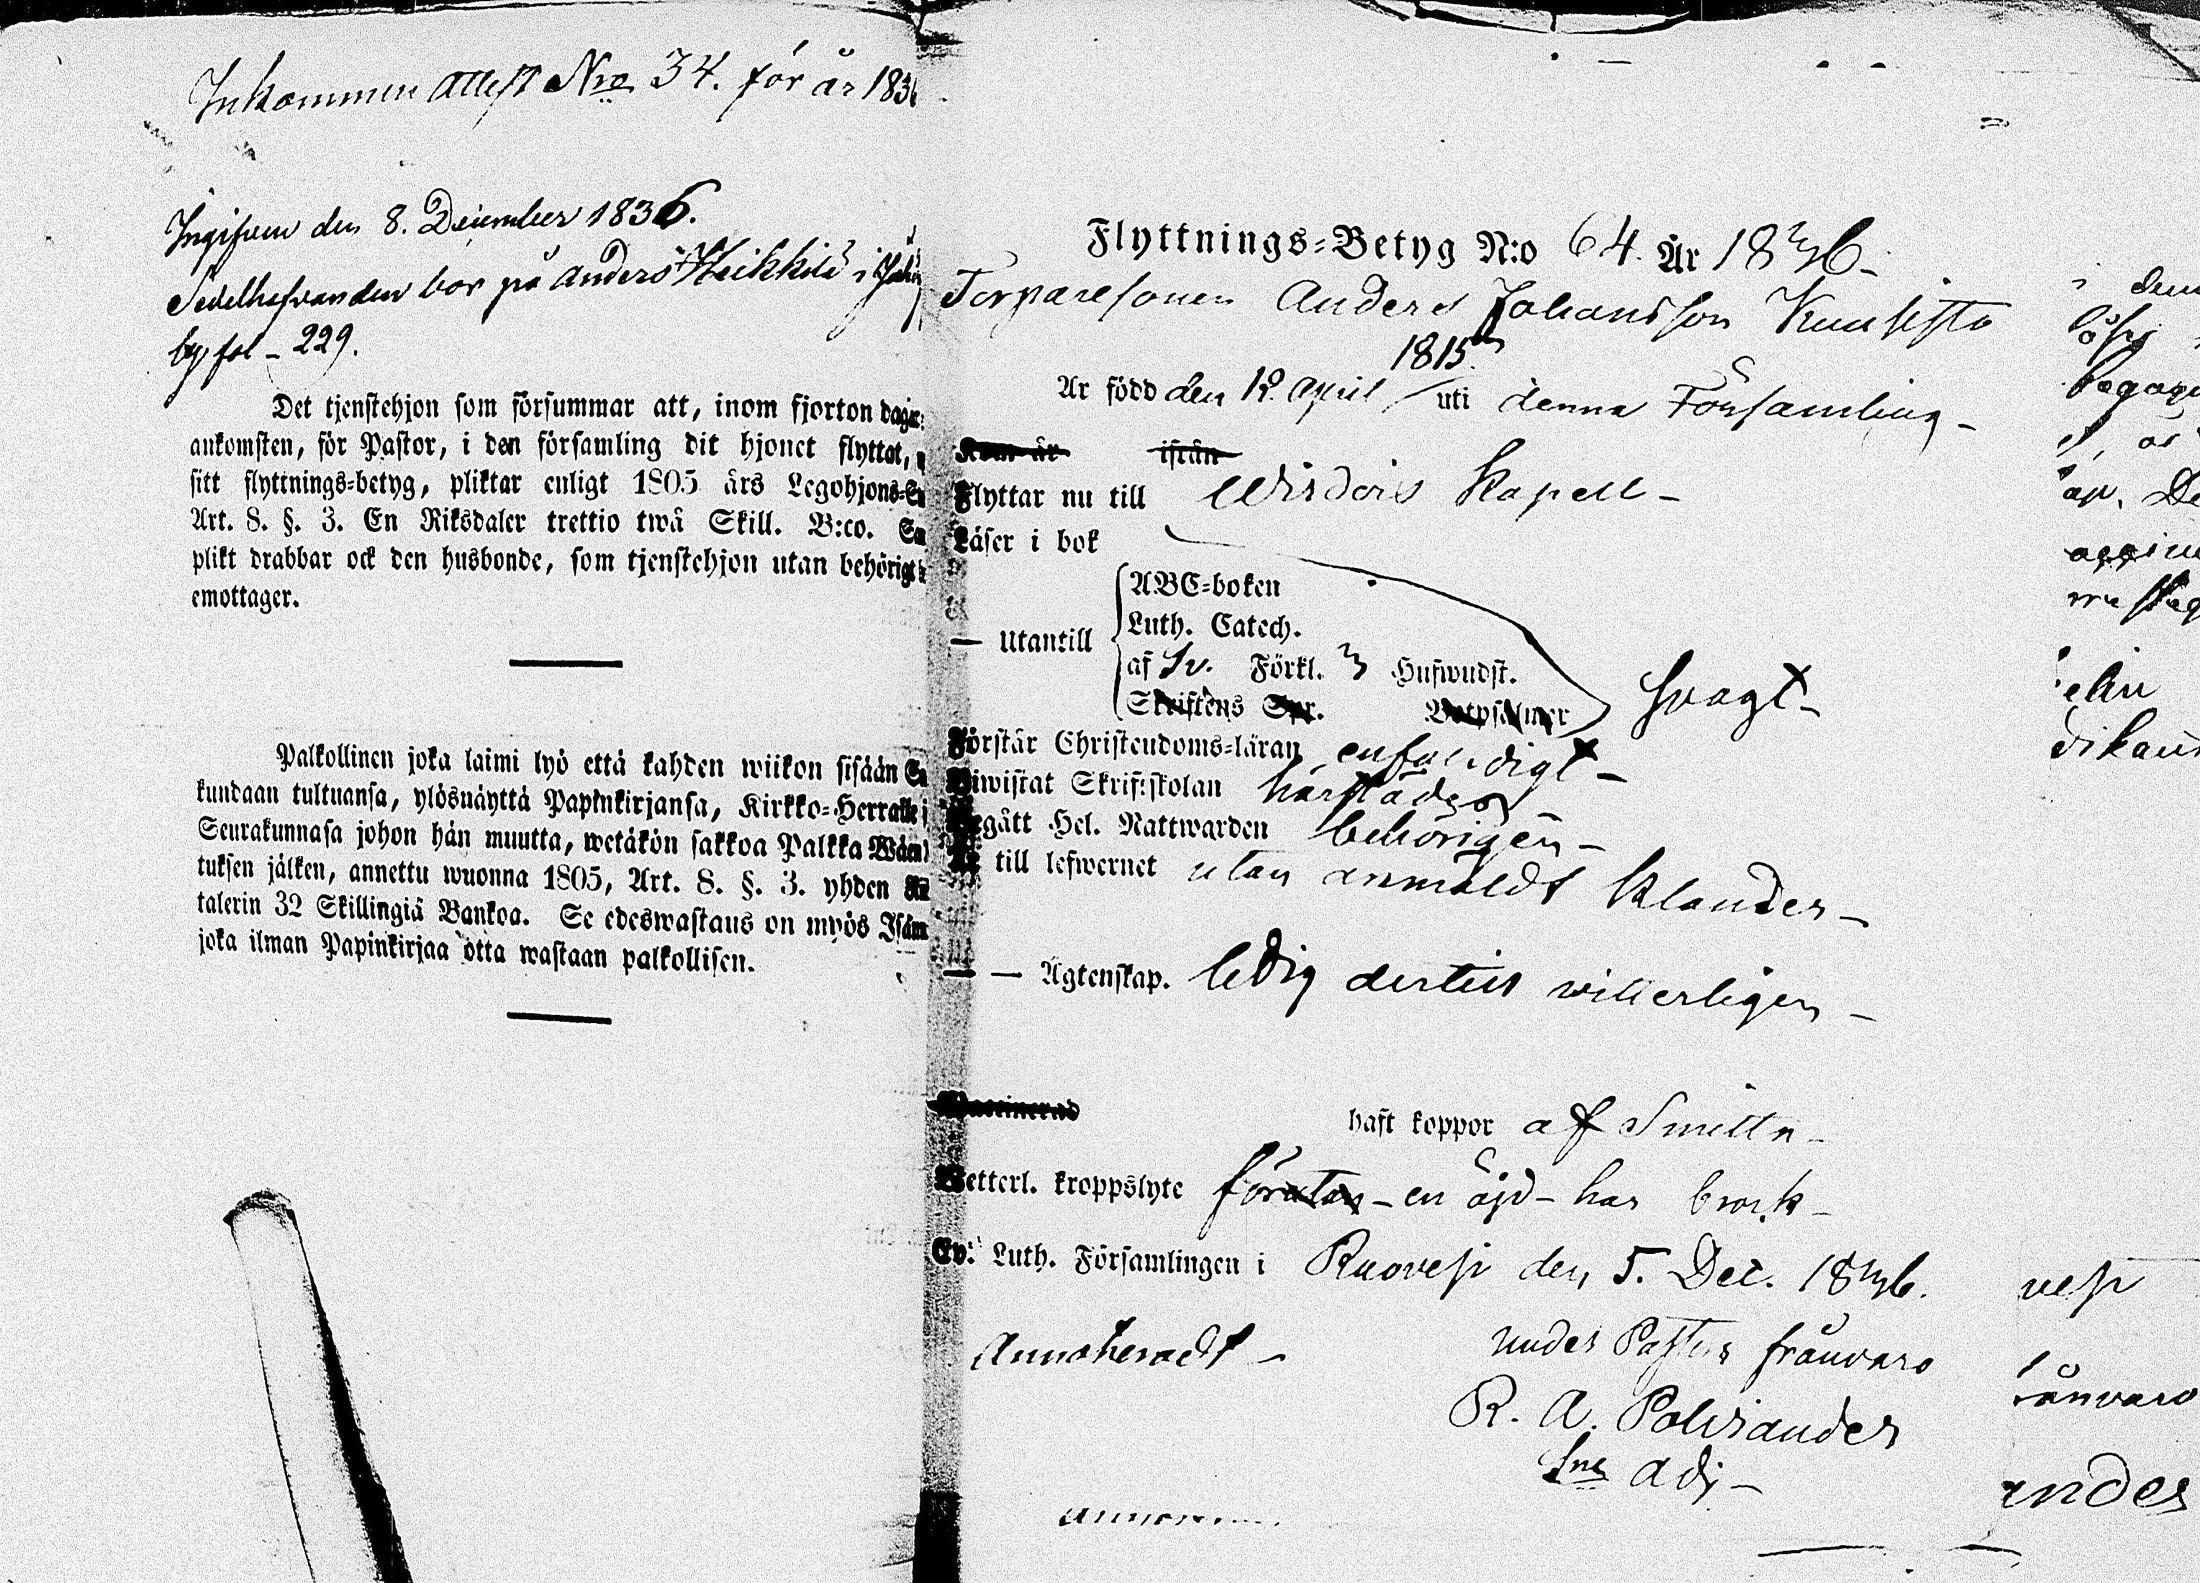 Inkommen attest Nro 34. för år 183
Ingifven den 8. December 1836.
Sedelhafvanden bor på Anders Heikkilä i
by, fol - 229.
Det tjenstehjon som försummar att, inom fjorton dagar
ankomsten, för Pastor, i den församling dit hjonet flyttat,
sitt flyttnings=betyg, pliktar enligt 1805 års Legohjons=
Art. 8. §. 3. En Riksdaler trettio twå Skill. B:co.
plikt drabbar ock den husbonde, som tjenstehjon utan behörigt
emottager.
Palkollinen joka laimi lyö että kahden wiikon sisään
kundaan tultuansa, ylösnäyttä Papinkirjansa, Kirkko=Herralle
Seurakunnasa johon hän muutta, wetäkön sakkoa Palkka
tuksen jälken, annettu wuonna 1805, Art. 8. §. 3. yhden
talerin 32 Skillingiä Bankoa. Se edeswastaus on myös
joka ilman Papinkirjaa otta wastaan palkollisen.
Flyttnings=Betyg N:o 64. År 1836 -
Torparesonen Anders Johansson Kuusisto
1815
Är född den 12 April uti denna Församling -
Kom år ifrån
Flyttar nu till Wirdois Kapell -
Läser i bok
ABC=boken
Luth. Catech.
— Utantill
af Sv. Förkl. 3 Hufwudst.
Skriftens Spr. Botpsalmer
svagt -
Förstår Christendoms=läran enfaldigt -
Biwistat Skriftskolan härstädes
Begått Hel. Nattwarden behörigen -
Är till lefwernet utan anmäldt klander -
— — Ägtenskap. ledig dertill willerligen -
Vaccinerad haft koppor af Smitta -
Wetterl. kroppslyte förutan - en åjd - har brock -
Ev. Luth. Församlingen i Ruovesi den 5. Dec. 1836.
Annoteradt - under Pastors frånvaro
R. A. Polviander
Sne adj -